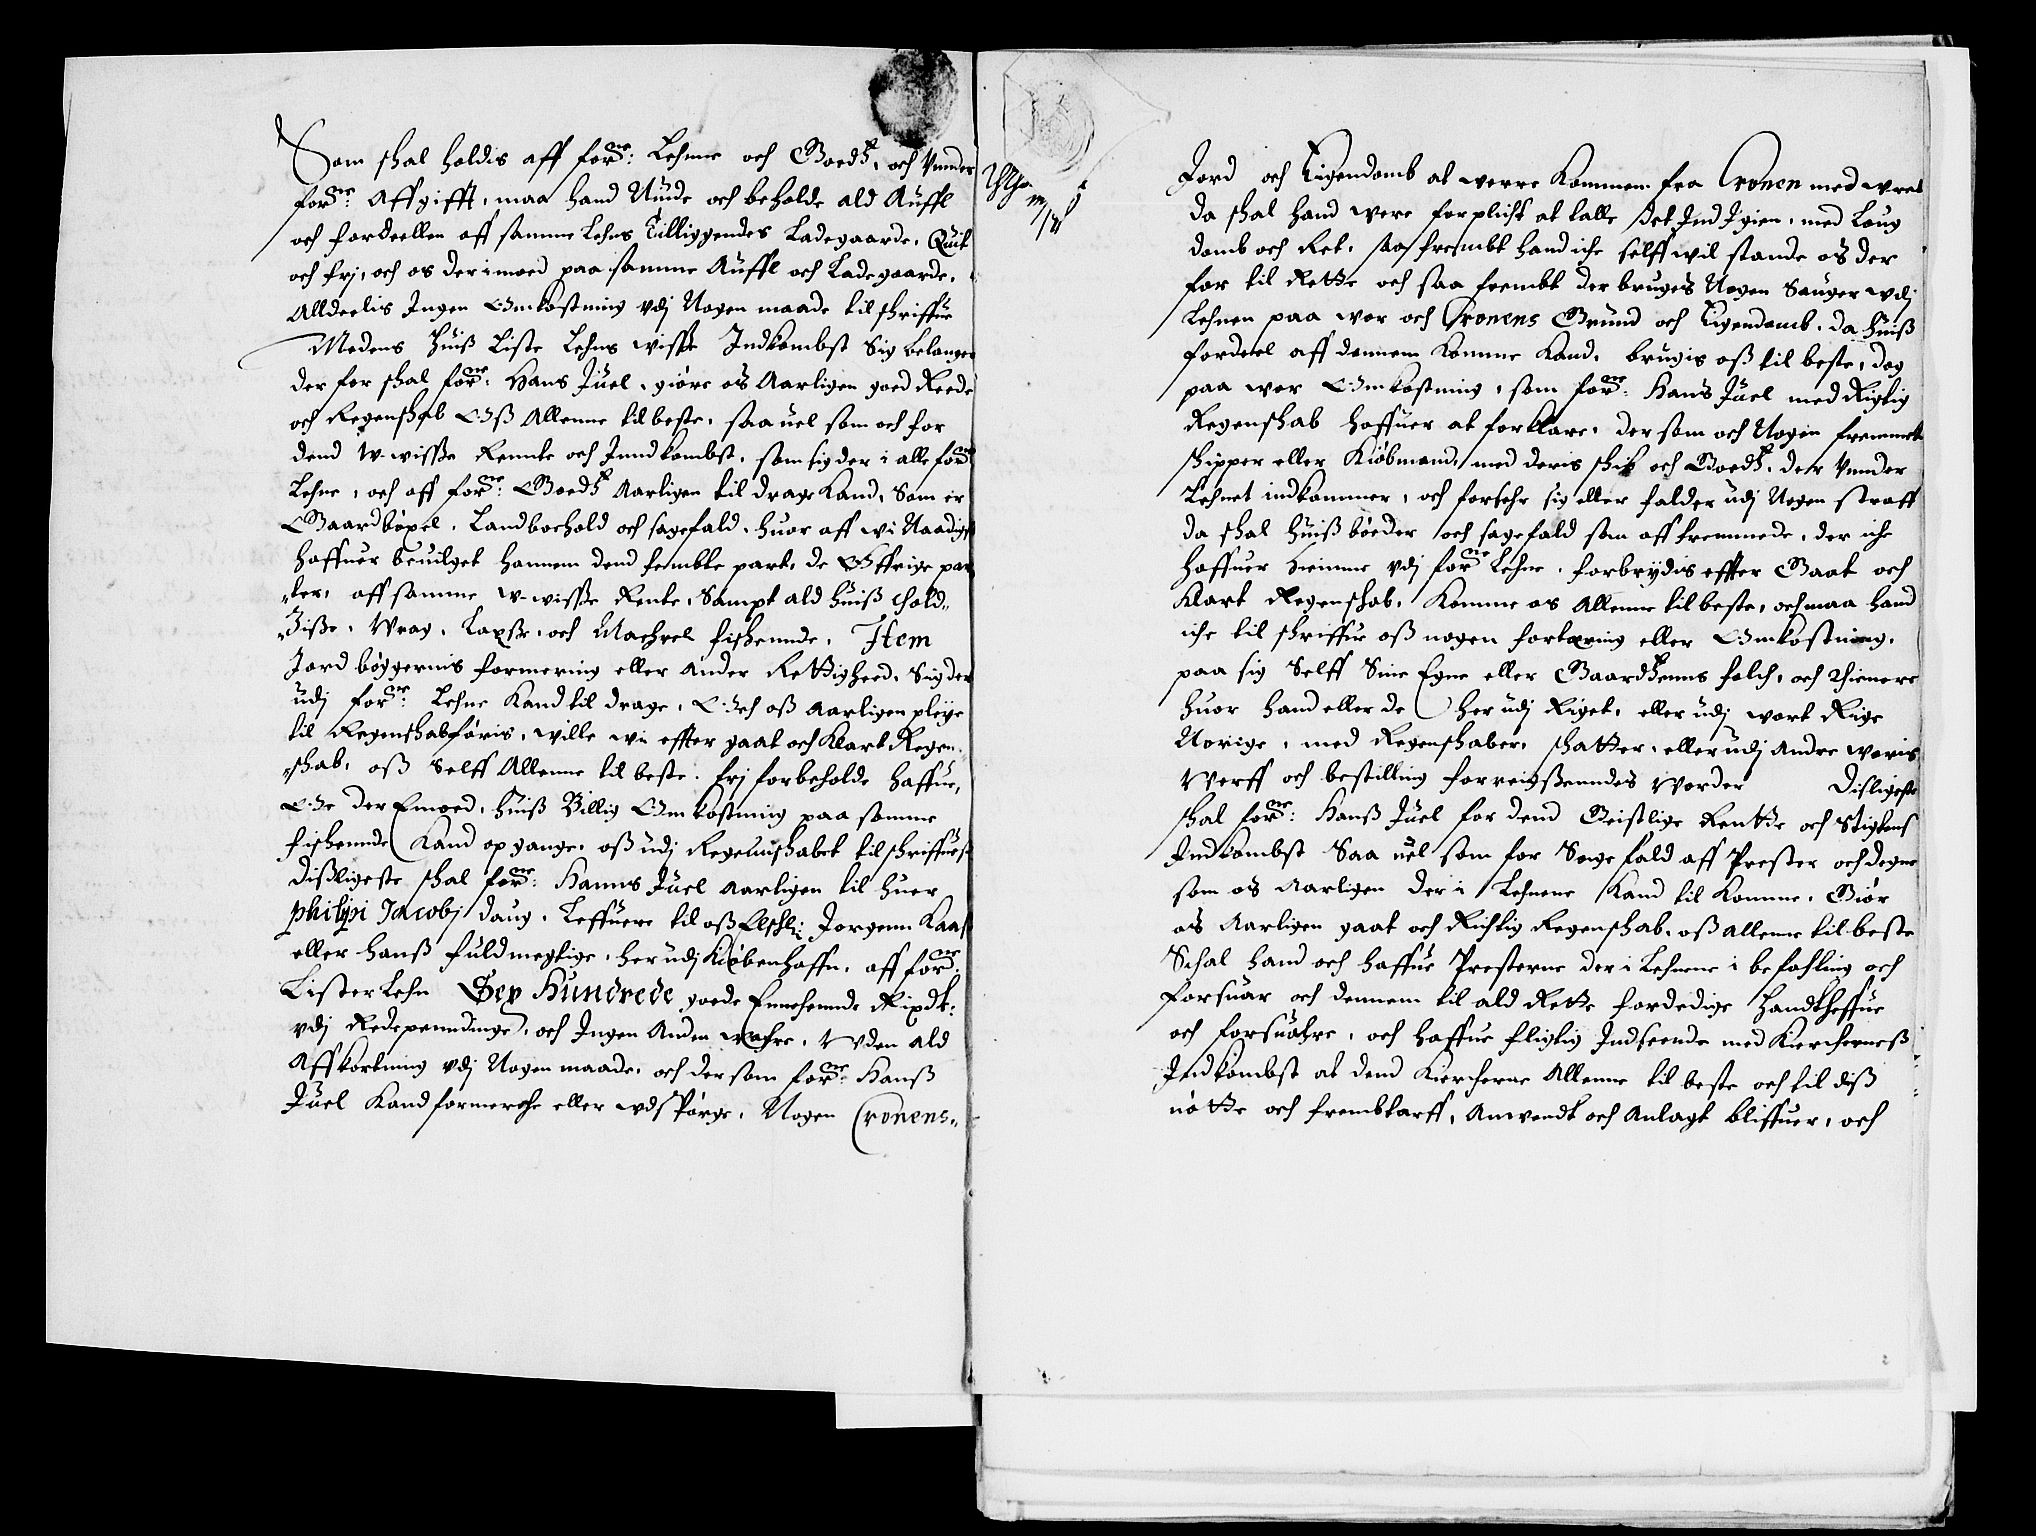 Som skal holdis aff forne: Lehne och Goedtz, och Vnder
forne: Affgifft, maa hand Niude och beholde ald Auffl
och fordeellen aff samme Lehns Tilliggendes Ladegaarde, Quit
och frj, och os der imoed paa samme Auffl och Ladegaarde,
Alldeelis Ingen Omkostning vdj Nogen maade til schriffue
Medens Huiß Liste Lehns wisse Indkombst Sig belanger
der for skal forne: Hans Juel, giøre os Aarligen goed Reede
och Regenskab Oß Allenne til beste, saauel som och for
dend W-wisße Rennte och Inndkombst, som sig der i alle forne
Lehne, och aff forne: Goedtz Aarligen til drage Kand, Som er
Gaardbøxel, Landbochold och sagefald, huor aff wi Naadigst
haffuer beuilget hannem dend fembte part, de Offrige par
ter, aff samme w-wisße Rente, Sampt ald huiß Told,,
Ziße, Wrag, Laxße, och Machrel fiskennde, Item
Jord bøggernis formering eller ander Rettigheed, Sig der
udj forne: Lehne Kand til drage, Och oß Aarligen pleye
til Regenskab føris, wille wi effter gaat och Klart Regen
skab, oß Selff Allenne til beste, frj forbeholde haffue,
Och der Emoed, huiß Billig Omkostning paa samme
fiskennde Kand opgange, oß udj Regennskabet til schriffuest
dißligeste skal forne: Hanns Juel Aarligen til huer
philippi Jacobj daug, Leffuere til oß Elschlig Jorgenn Kaaß
eller hanß fuldmegtige, her udj Kiøbenhaffn, aff forne:
Lister Lehn Sex Hundrede goede Ennchennde Rixdlr:
vdj Redepenndinge, och Ingen Anden wahre, Uden ald
Affkortning vdj Nogen maade, och der som forne: Hanß
Juel Kand formerche eller udspørge, Nogen Cronens,,
Jord och Eigendomb at verre Kommen fra Cronen med wret
da skal hand were forplicht at talle Det Ind Igien, med Laug
domb och Ret, saa frembt hand iche selff wil stande os der
for til Rette och saa frembt der bruges Nogen Sauger udj
Lehnen paa wor och Cronens Grund och Eigendomb, da huiß
fordeel aff dennem Komme Kand, brugis oß til beste, dog
paa wor Omkostning, som forne: Hans Juel med Rigtig
Regenskab haffuer at forklare, der som och Nogen fremmet
skipper eller Kiøbmand, med deris skib och Goedtz, der Vnnder
Lehnet indkommer, och forsehr sig eller falder udj Nogen straff
da skal huiß bøeder och sagefald som aff fremmede, der iche
haffuer hieimme vdj forne Lehne, forbrydis effter Gaat och
Klart Regenskab, Komme os Allenne til beste, och maa hand
iche til schriffue oß nogen fortæring eller Omkostning,
paa sig Selff Sine Egne eller Gaardtzenns folch, och Thienere
huor hand eller de her udj Riget, eller udj wort Rige
Norige, med Regenskaber, skatter, eller udj andre woris
Werff och bestilling forreigßenndes Worder Disligeste
skal forne: Hanß Juel for dend Geistlige Rentte och Stigtens
Indkombst Saa uel som for Sagefald aff Prester och degne
som os Aarligen der i Lehnene Kand til Komme, Giør
os Aarligen gaat och Richtig Regenskab, oß allenne til beste
Schal hand och haffue Presterne der i Lehnene i befahling och
forsuar och dennem til ald Rette fordedige Handtheffue
och forsuahre, och haffue fligtig Indseende med Kiercherneß
Indkombst at dend Kiercherne Allenne til beste och til diß
nøtte och frembtarff, Anwendt och Anlagt bliffuer, och